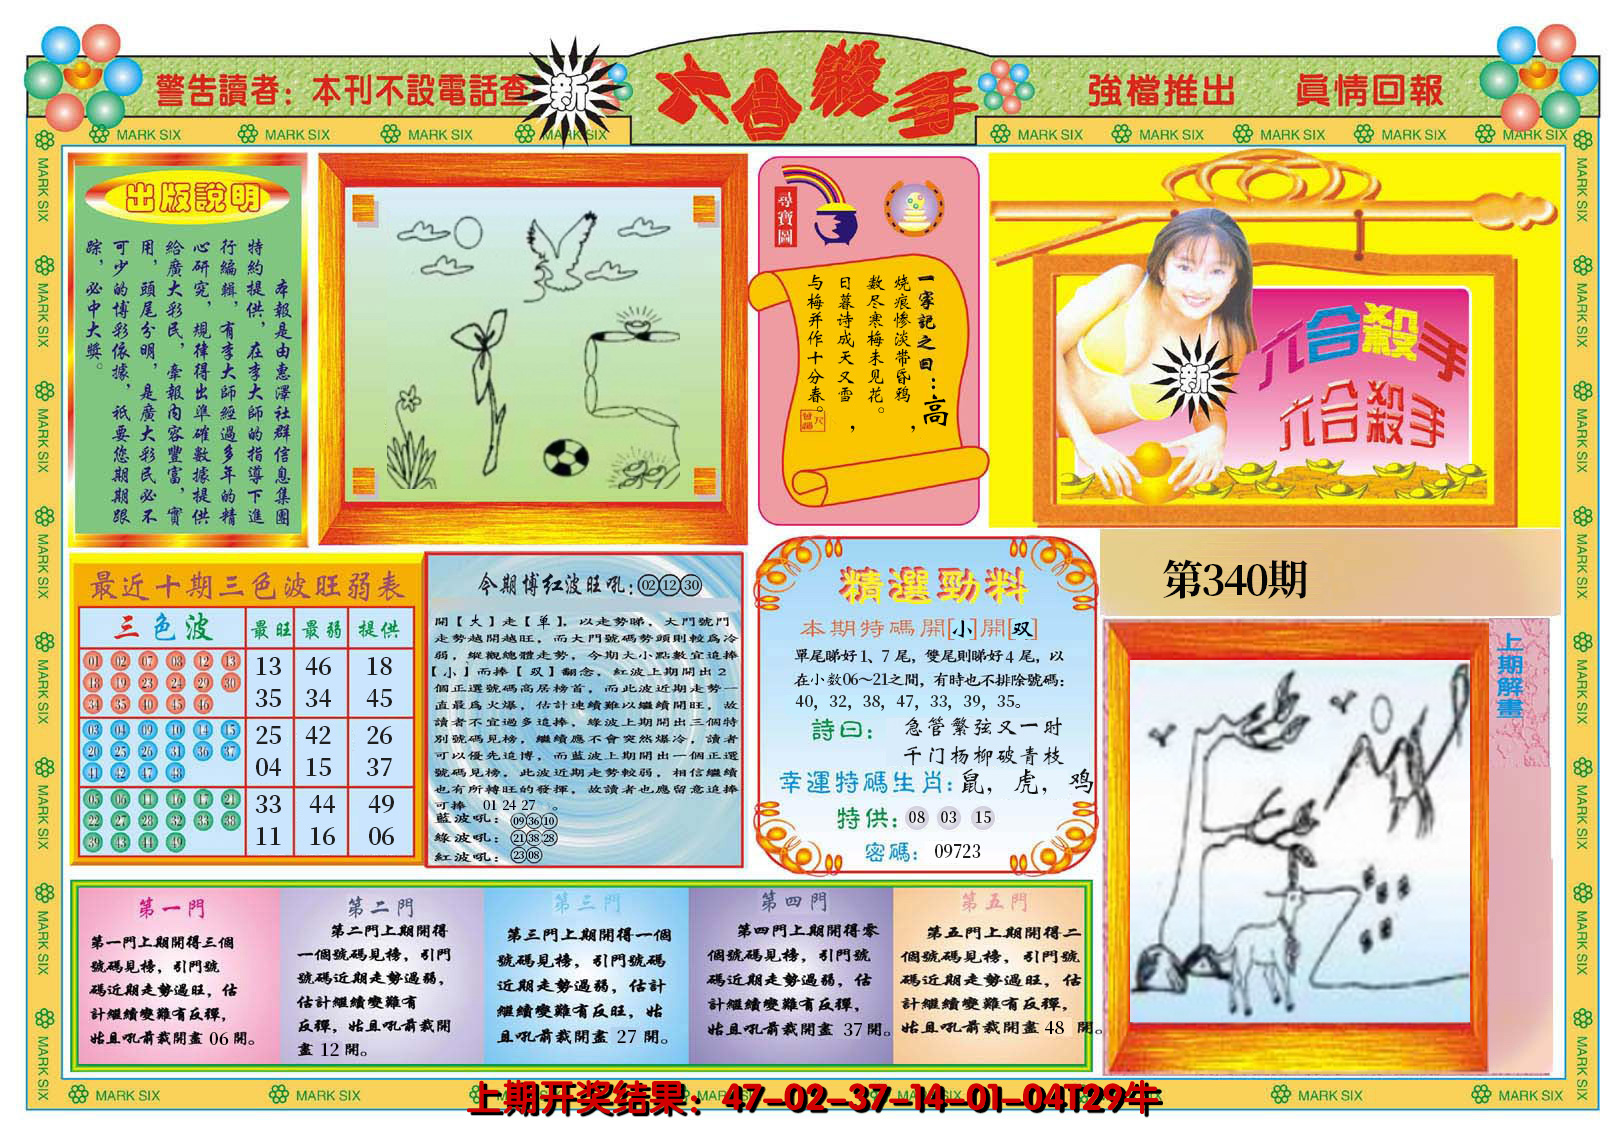 警告讀者：本刊不設電話查
新
六合殺手
強檔推出 眞情回報
MARK SIX MARK SIX MARK SIX MARK SIX MARK SIX MARK SIX MARK SIX MARK SIX MARK SIX
出版說明
本報是由惠澤社群信息集團
特約提供，在李大師的指導下進
行編輯，有李大師經過多年的精
心研究，規律得出準確數據提供
給廣大彩民，牽報內容豐富，實
用，頭尾分明，是廣大彩民必不
可少的博彩依據，祇要您期期跟
踪，必中大獎。
尋寶圖
一家記之曰：高
烧痕惨淡带昏鸦，
数尽寒梅未见花。
日暮诗成天又雪，
与梅并作十分春。
六合殺手
六合殺手
新
第340期
最近十期三色波旺弱表
三色波 最旺 最弱 提供
01 02 07 08 12 13
18 19 23 24 29 30
34 35 40 45 46
13 46 18
35 34 45
03 04 09 10 14 15
20 25 26 31 36 37
41 42 47 48
25 42 26
04 15 37
05 06 11 16 17 21
22 27 28 32 33 38
39 43 44 49
33 44 49
11 16 06
今期博红波旺吼：02 12 30
開【大】走【單】，以走勢睇，大門號門
走勢越開越旺，而大門號碼勢頭則較爲冷
弱，縱觀總體走勢，今期大小點數宜追捧
【小】而捧【双】翻念，紅波上期開出2
個正選號碼高居榜首，而此波近期走勢一
直最爲火爆，估計連續難以繼續開旺，故
讀者不宜過多追捧，綠波上期開出三個特
別號碼見榜，繼續應不會突然爆冷，讀者
可以優先追博，而藍波上期開出一個正選
號碼見榜，此波近期走勢較弱，相信繼續
也有所轉旺的發揮，故讀者也應留意追捧
可捧 01 24 27 。
藍波吼：09 36 10
綠波吼：21 38 28
紅波吼：23 08
精選勁料
本期特碼開[小]開[双]
單尾睇好1、7尾，雙尾則睇好4尾，以
在小数06～21之間，有時也不排除號碼：
40，32，38，47，33，39，35。
詩曰： 急管繁弦又一时
千门杨柳破青枝
幸運特碼生肖：鼠，虎，鸡
特供：08 03 15
密碼：09723
上期解畫
第一門
第一門上期開得三個
號碼見榜，引門號
碼近期走勢過旺，估
計繼續變難有反彈，
姑且吼前裁開盡 06 開。
第二門
第二門上期開得
一個號碼見榜，引門
號碼近期走勢過弱，
估計繼續變難有
反彈，姑且吼前裁開
盡 12 開。
第三門
第三門上期開得一個
號碼見榜，引門號碼
近期走勢過弱，估計
繼續變難有反旺，姑
且吼前裁開盡 27 開。
第四門
第四門上期開得零
個號碼見榜，引門號
碼近期走勢過弱，估
計繼續變難有反彈，
姑且吼前裁開盡 37 開。
第五門
第五門上期開得二
個號碼見榜，引門號
碼近期走勢過旺，估
計繼續變難有反彈，
姑且吼前裁開盡 48 開。
MARK SIX MARK SIX MARK SIX MARK SIX
上期开奖结果：47-02-37-14-01-04T29牛